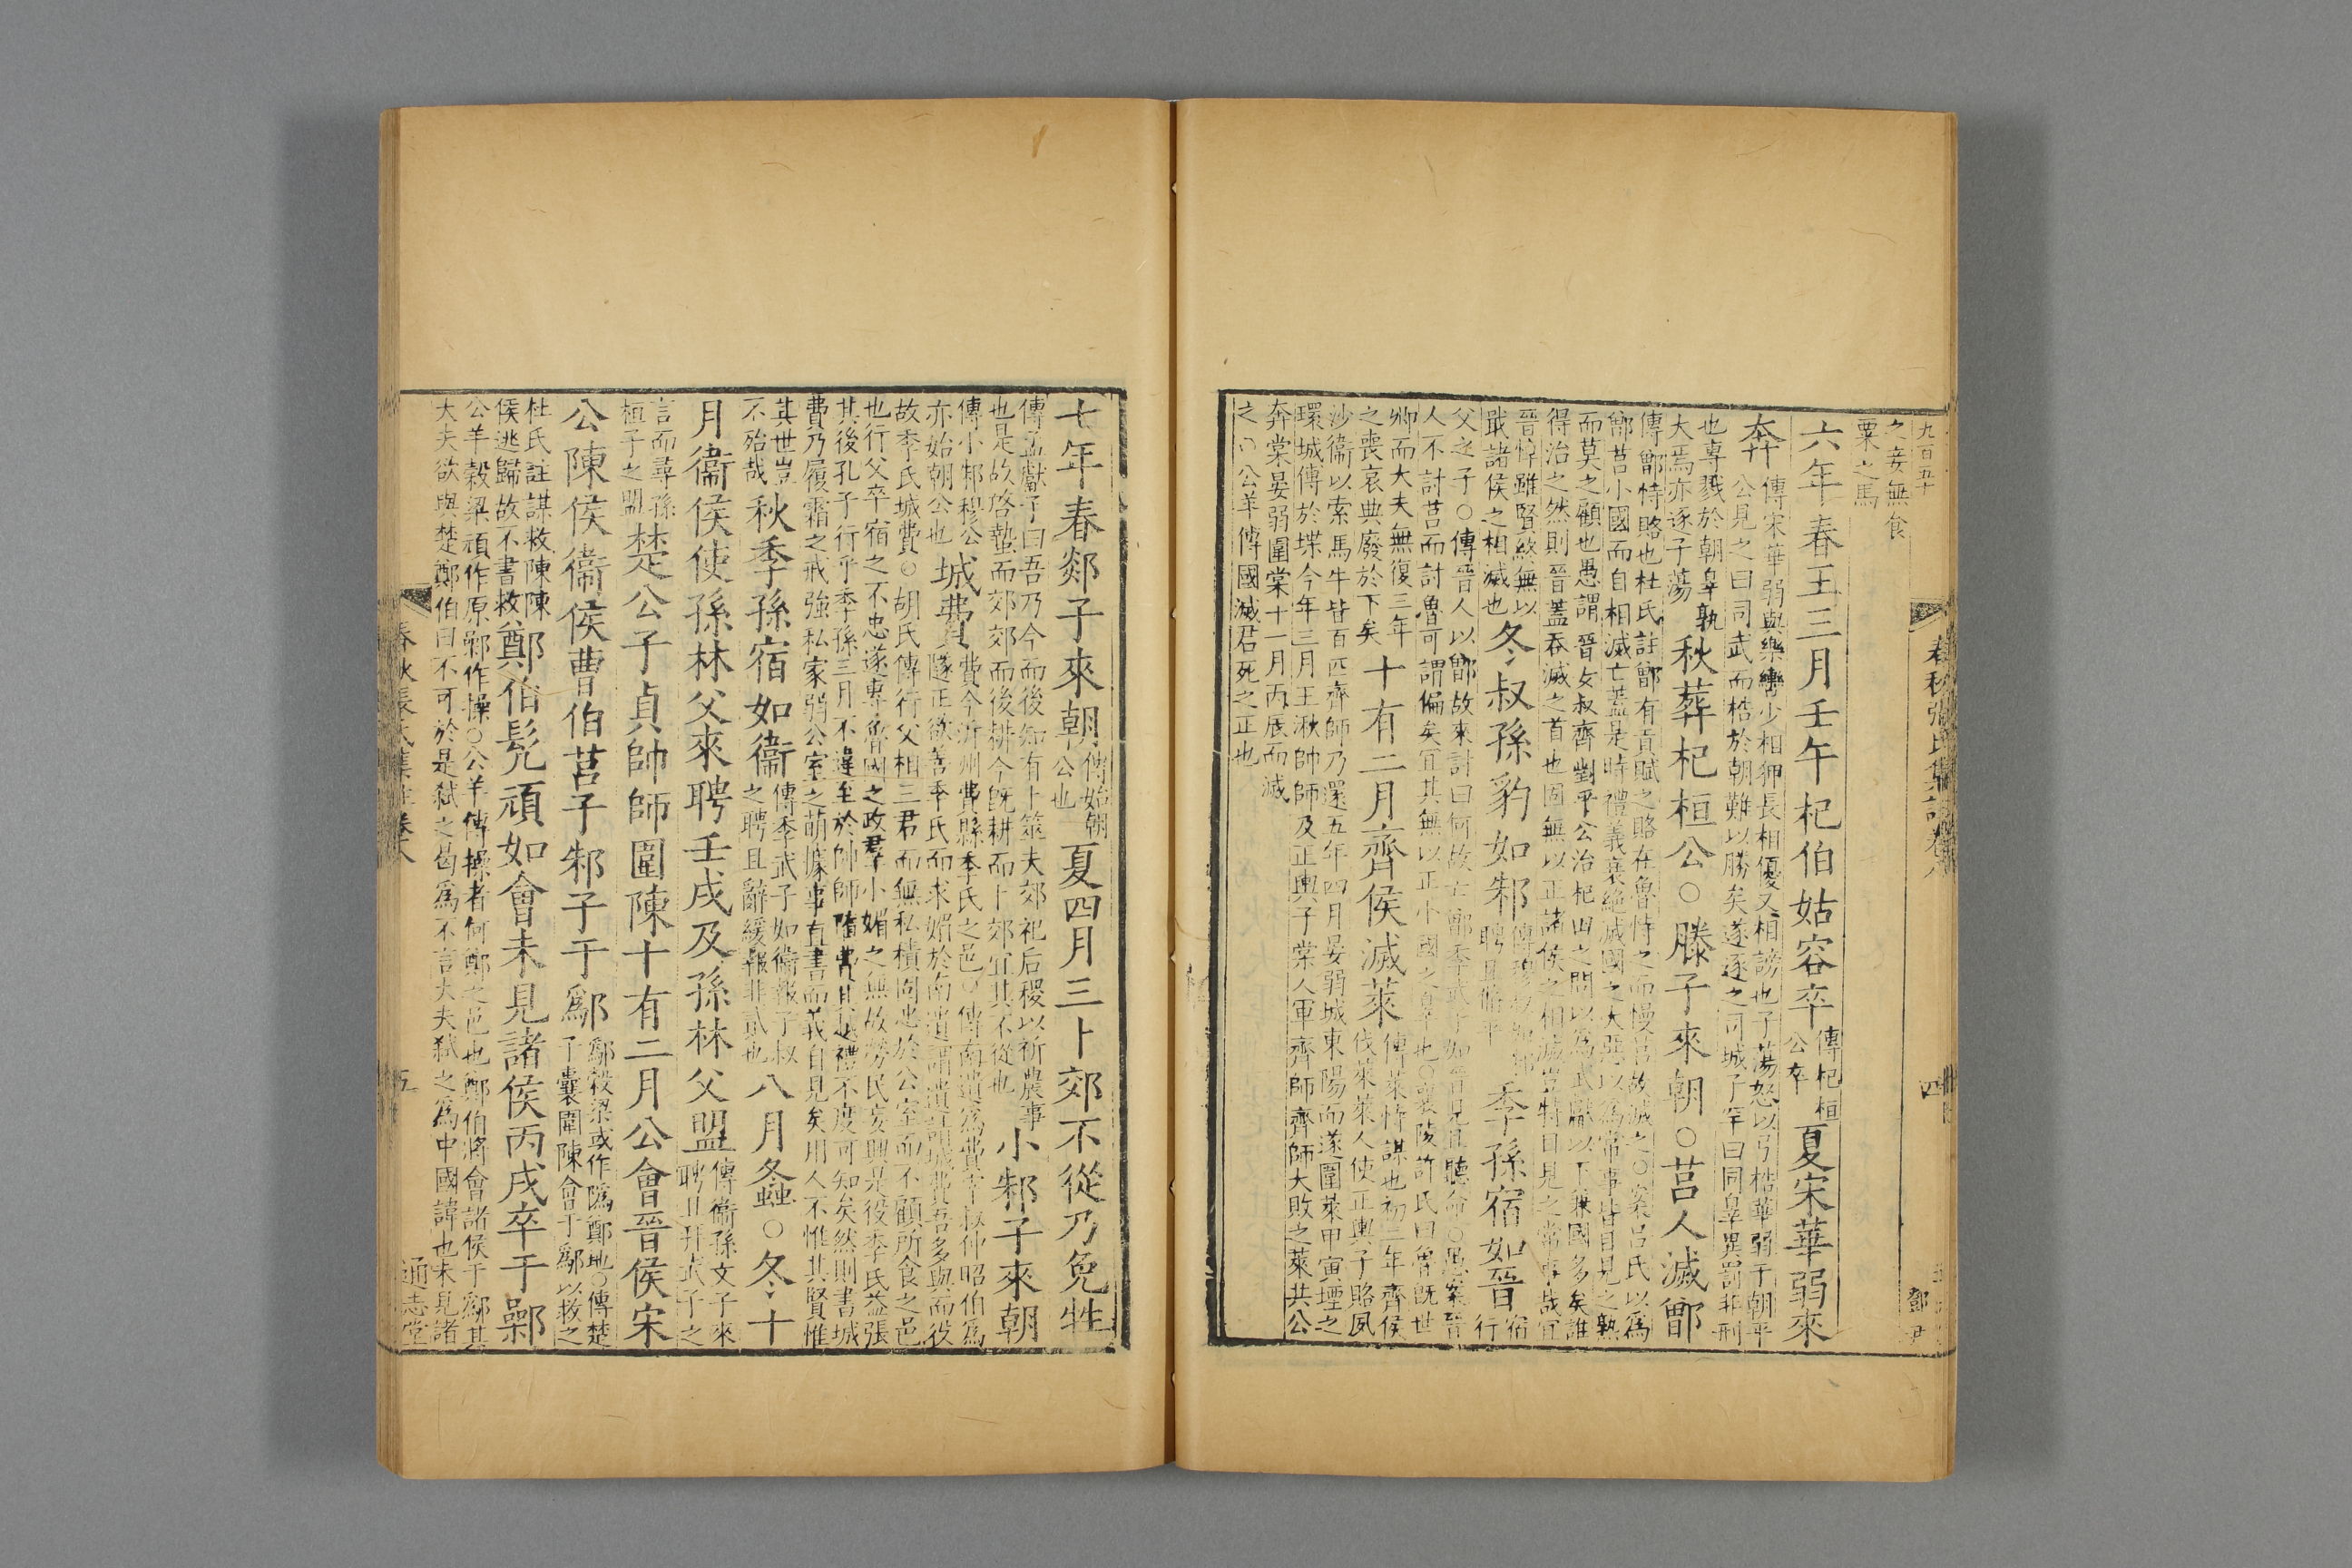 九百五十
春秋張氏集註卷八
四
鄧尹
之妾無食
粟之馬
六年春王三月壬午杞伯姑容卒
傳杞桓
公卒
夏宋華弱來
奔
傳宋華弱與樂轡少相狎長相優又相謗也子蕩怒以弓梏華弱于朝平
公見之曰同武而梏於朝難以勝矣遂逐之司城子罕曰同辠異罰非刑
也專戮於朝辠孰
大焉亦逐子蕩
秋葬杞桓公○滕子來朝○莒人滅鄫
傳鄫恃賂也杜氏註鄫有貢賦之賂在魯恃之而慢莒故滅之○案呂氏以為
鄫莒小國而自相滅亡蓋是時禮義衰絶滅國之大惡以為常事皆目見之孰
而莫之顧也愚謂晉女叔齊對平公治杞田之問以為武獻以下兼國多矣誰
得治之然則晉蓋吞滅之首也固無以正諸侯之相滅豈特目見之常事哉宜
晉悼雖賢無以
戢諸侯之相滅也
冬叔孫豹如邾
傳穆叔如邾
聘且脩平
季孫宿如晉
宿
行
父之子○傳晉人以鄫故來討曰何故亡鄫季武子如晉見且聽命○愚案晉
人不討莒而討魯可謂偏矣宜其無以正小國之辠也○襄陵許氏曰魯旣世
卿而大夫無復三年
之喪哀典廢於下矣
十有二月齊侯滅萊
傳萊恃謀也初二年齊侯
伐萊萊人使正輿子賂夙
沙衞以索馬牛皆百匹齊師乃還五年四月晏弱城東陽而遂圍萊甲寅堙之
環城傅於堞今年三月王湫帥師及正輿子棠人軍齊師齊師大敗之萊共公
奔棠晏弱圍棠十一月丙辰而滅
之○公羊傳國滅君死之正也
七年春郯子來朝
傳始朝
公也
夏四月三卜郊不從乃免牲
傳孟獻子曰吾乃今而後知有卜筮夫郊祀后稷以祈農事
也是故啓蟄而郊郊而後耕今旣耕而卜郊宜其不從也
小邾子來朝
傳小邾穆公
亦始朝公也
城費
費今沂州費縣季氏之邑○傳南遺為費宰叔仲昭伯為
隧正欲善季氏而求媚於南遺謂遺請城費吾多與而役
故季氏城費○胡氏傳行父相三君而無私積固忠於公室而不顧所食之邑
也行父卒宿之不忠遂專魯國之政羣小媚之無故勞民妄興是役季氏益張
其後孔子行乎季孫三月不違至於帥師隳費其越禮不度可知矣然則書城
費乃履霜之戒強私家弱公室之萌據事直書而義自見矣用人不惟其賢惟
其世豈
不殆哉
秋季孫宿如衞
傳季武子如衞報子叔
之聘且辭緩報非貳也
八月螽○冬十
月衞侯使孫林父來聘壬戌及孫林父盟
傳衞孫文子來
聘且拜武子之
言而尋孫
桓子之盟
楚公子貞帥師圍陳十有二月公會晉侯宋
公陳侯衞侯曹伯莒子邾子于鄬
鄬穀梁或作隝鄭地○傳楚
子囊圍陳會于鄬以救之
杜氏註謀救陳陳
侯逃歸故不書救
鄭伯髡頑如會未見諸侯丙戌卒于鄵
公羊穀梁頑作原鄵作操○公羊傳操者何鄭之邑也鄭伯將會諸侯于鄬其
大夫欲與楚鄭伯曰不可於是弑之曷為不言大夫弑之為中國諱也未見諸
春秋張氏集註卷八
五
通志堂